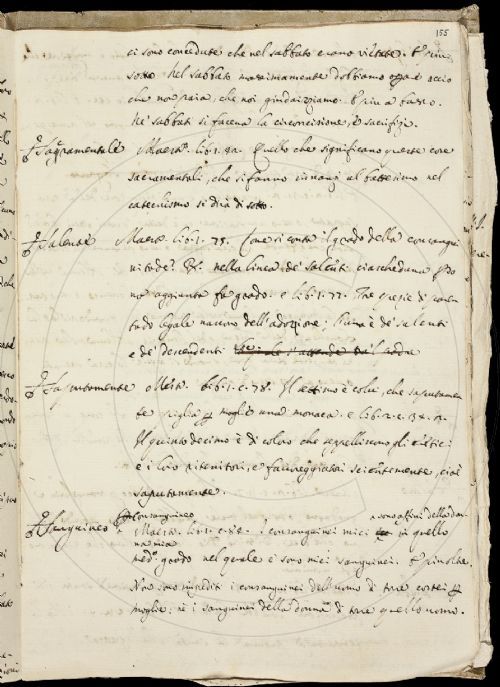 155
ci sono concedute che nel sabbato erano vietate. E piu
sotto. Nel sabbato massimamente dobbiamo acciò
che non paia, che noi giudaizziamo. E piu a basso.
Ne' sabbati si faceva la circoncisione, e sacrifizi.
Sagramentale Maestr. lib. 1. Quello che significano queste cose
sacramentali, che si fanno innanzi al battesimo nel
catechismo si dirà di sotto.
Salenti Maestr. lib. 1. 75. Come si conte il grado della consangui
nità de'. nella linea de' salenti ciascheduna
na aggiunta fa grado. e lib. 1. 77. Tre spezie di paren
tado legale nascono dell'adozione; Prima è de' salenti
e de' descendenti
Saputamente Mestr. lib. 1. c. 78. Il settimo è colui, che saputamen
te piglia per moglie una monaca. e lib. 2. c.
Il quinto decimo è di coloro che seppelliscono gli eretici
e i loro ritenitori, e favoreggiatori scientemente, cioè
saputamente.
Consanguineo sono affini della don
Sanguineo Maestr. lib. 1. c. 82. i consanguinei miei in quello
na mia
med.o grado nel quale e sono miei sanguinei. E più oltre.
Non sono impediti i consanguinei dell'uomo di torre costei per
moglie; nè i sanguinei della donna di torre quello uomo.